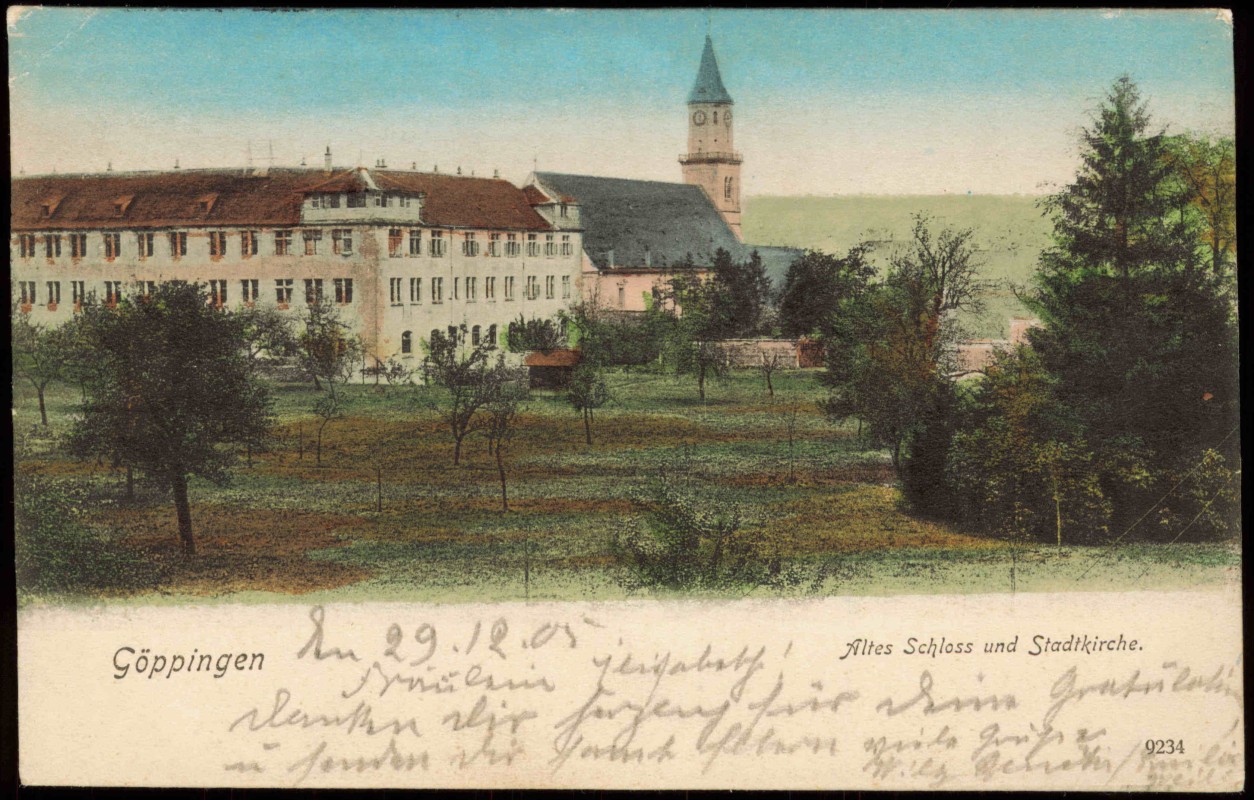 Göppingen
Altes Schloss und Stadtkirche.
29.12.05
Fräulein Elisabeth!
danken dir herzens für deine Gratulation
u senden dir samt Eltern viele Grüße
9234